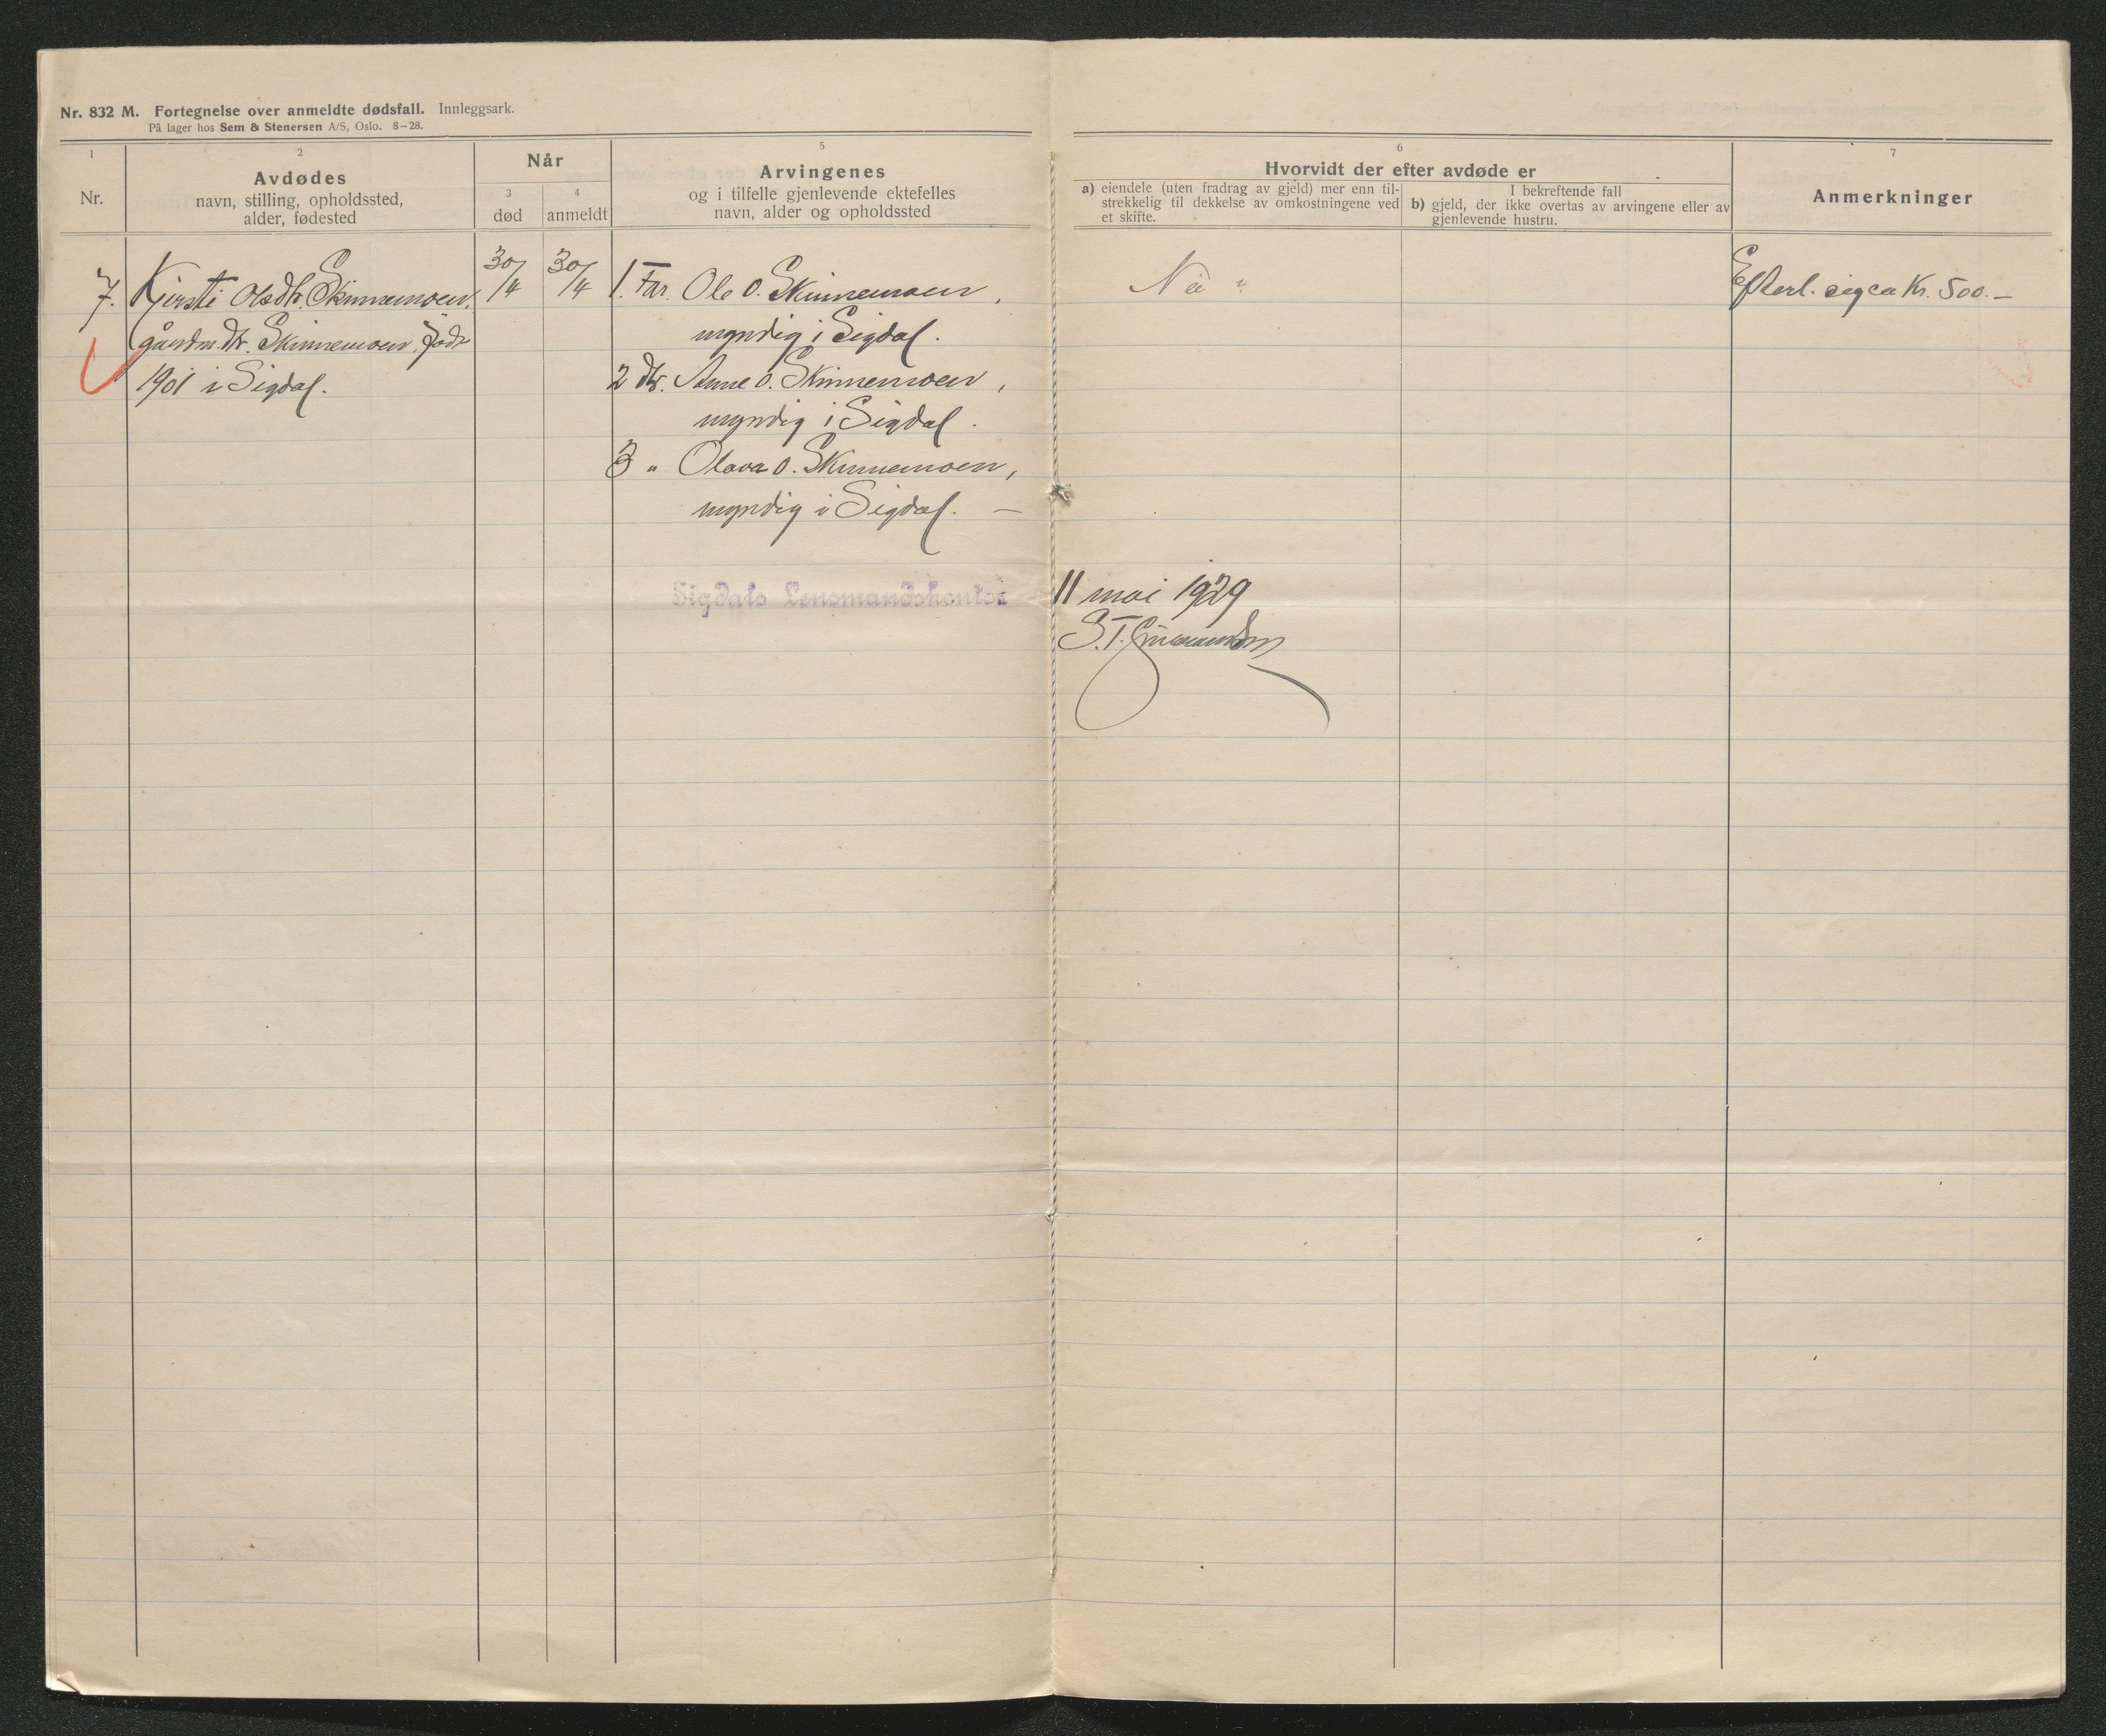 Nr. 832 M. Fortegnelse over anmeldte dødsfall. Innleggsark.
På lager hos Sem & Stenersen A/S, Oslo. 8–28.
1
Nr.
2
Avdødes
navn, stilling, opholdssted,
alder, fødested
Når
3
død
4
anmeldt
5
Arvingenes
og i tilfelle gjenlevende ektefelles
navn, alder og opholdssted
6
Hvorvidt der efter avdøde er
a) eiendele (uten fradrag av gjeld) mer enn til-
strekkelig til dekkelse av omkostningene ved
et skifte.
I bekreftende fall
b) gjeld, der ikke overtas av arvingene eller av
gjenlevende hustru.
7
Anmerkninger
7.
Kjersti Olsdtr. Skinnemoen,
gårdm. dtr. Skinnemoen, født
1901 i Sigdal.
30/4
30/4
1. Far. Ole O. Skinnemoen,
myndig i Sigdal.
2 dtr. Anne O. Skinnemoen,
myndig i Sigdal.
3 " Olava O. Skinnemoen,
myndig i Sigdal. —
Efterl. sig ca Kr. 500.—
Sigdals Lensmandskontor
11 mai 1929
S.T.